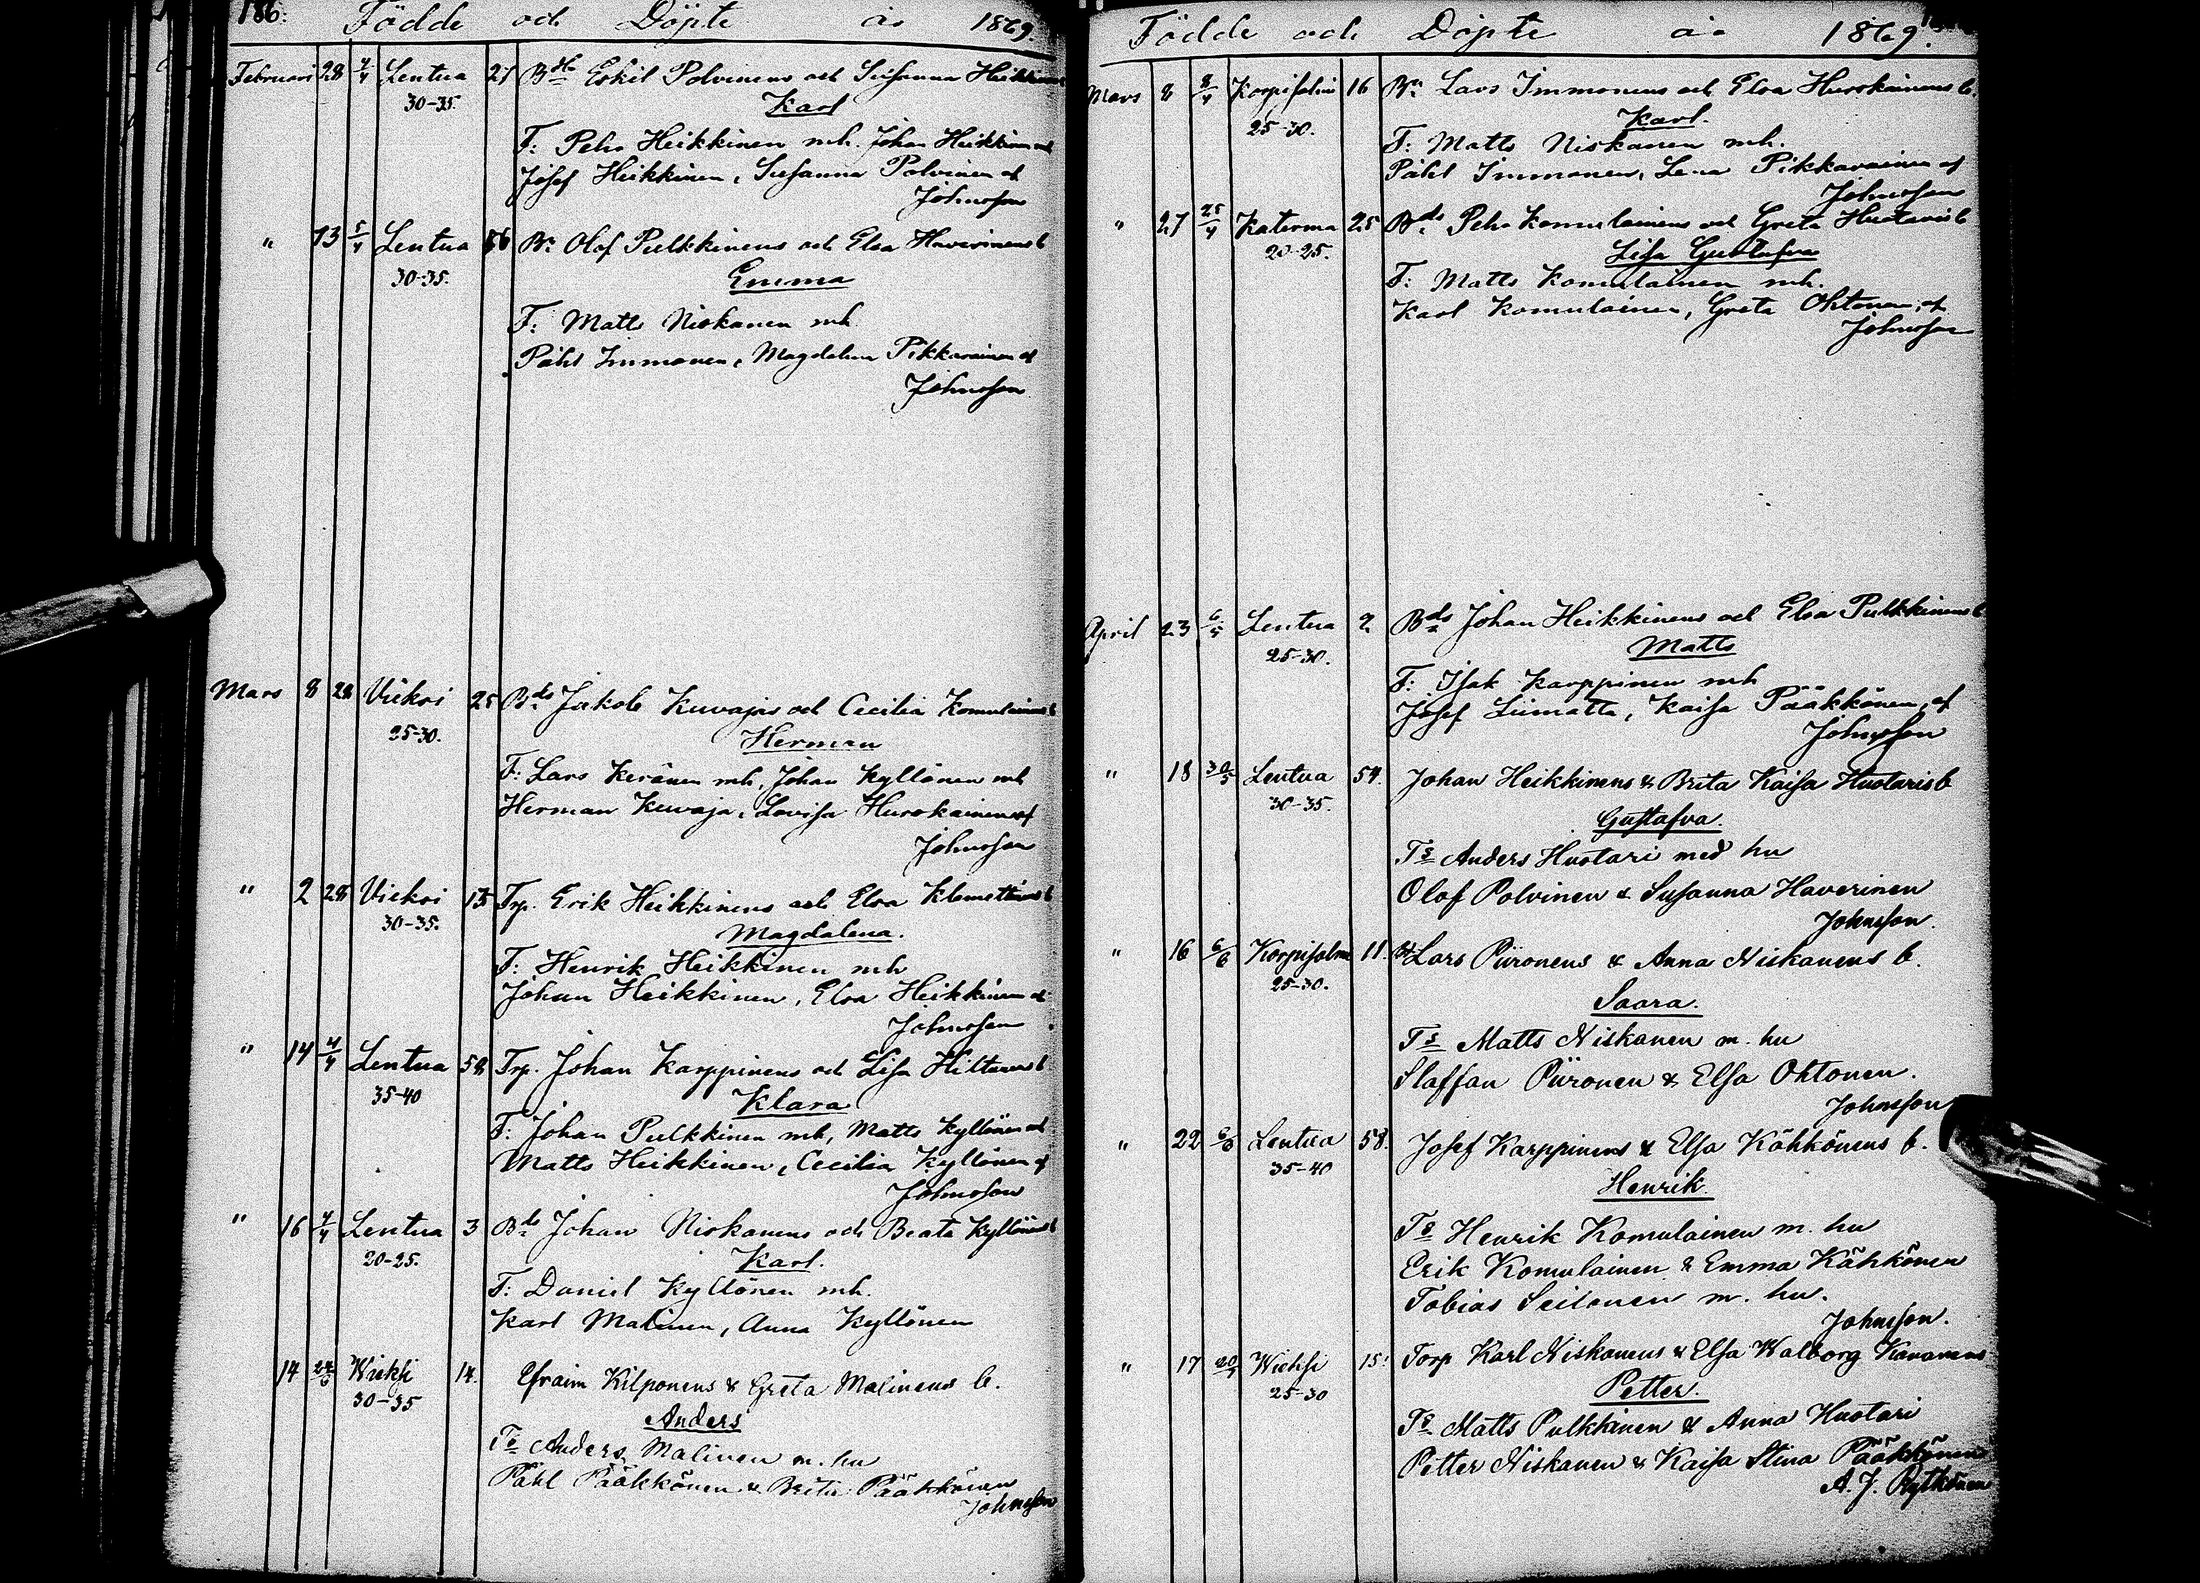 186.
Födde och Döpte år 1869.
Februari 28 4/4 Lentua 27 Bde Eskil Polvinens och Susanna Heikkinens
30-35. Karl
F: Pehr Heikkinen mh. Johan Heikkinen mh
Josef Heikkinen, Susanna Polvinen af
Johnsson
" 13 5/4 Lentua 56 Bn Olof Pulkkinens och Elsa Haverinens b
30-35. Emma
F: Matts Niskanen mh
Påhl Immonen, Magdalena Pikkarainen af
Johnsson
Mars 8 28 Vieksi 25 Bds Jakob Kuvajas och Cecilia Komulainens b
25-30. Herman
F: Lars Keränen mh, Johan Kyllönen mh
Herman Kuvaja, Lovisa Hurskainen af
Johnsson
" 2 28 Vieksi 15 Trp. Erik Heikkinens och Elsa Klemettinens b
30-35. Magdalena.
F: Henrik Heikkinen mh
Johan Heikkinen, Elsa Heikkinen af
Johnsson
" 14 4/4 Lentua 58 Trp. Johan Karppinens och Lisa Hiltunens b
35-40 Klara
F: Johan Pulkkinen mh, Matts Kyllönen mh
Matts Heikkinen, Cecilia Kyllönen af
Johnsson
" 16 4/4 Lentua 3 Bds Johan Niskanens och Beata Kyllönens b
20-25. Karl.
F: Daniel Kyllönen mh.
Karl Malinen, Anna Kyllönen
14 24/5 Wieksi 14. Efraim Kilponens & Greta Malinens b.
30-35 Anders
Fs Anders Malinen m. hu
Påhl Pääkkönen & Brita Pääkkönen
Johnsson
Födde och Döpte år 1869.
Mars 8 8/4 Korpisalmi 16 Bn Lars Immonens och Elsa Hurskainens b.
25-30. Karl.
F: Matts Niskanen mh.
Påhl Immonen, Lena Pikkarainen af
Johnsson
" 27 25/4 Katerma 25 Bds Pehr Komulainens och Greta Huotaris b
20-25. Lisa Gustafva
F: Matts Komulainen mh.
Karl Komulainen, Greta Ohtonen, af
Johnsson
April 23 6/5 Lentua 2 Bds Johan Heikkinens och Elsa Pulkkinens b
25-30. Matts
F: Isak Karppinen mh
Josef Liimatta, Kaisa Pääkkönen, af
Johnsson
" 18 30/5 Lentua 54. Johan Heikkinens & Brita Kaisa Huotaris b
30-35. Gustafva.
Fs Anders Huotari med hu
Olof Polvinen & Susanna Haverinen
Johnsson.
" 16 6/6 Korpisalmi 11. Lars Piironens & Anna Niskanens b.
25-30. Saara.
Fs Matts Niskanen m. hu
Staffan Piironen & Elsa Ohtonen.
Johnsson
" 22 6/6 Lentua 58. Josef Karppinens & Elsa Kähkönens b.
35-40 Henrik
Fs Henrik Komulainen m. hu
Erik Komulainen & Emma Kähkönen
Tobias Seilonen m. hu.
Johnsson.
" 17 Wieksi 15. Torp Karl Niskanens & Elsa Walborg Kananens
25-30 Petter.
Fs Matts Pulkkinen & Anna Huotari
Petter Niskanen & Kaisa Stina Pääkkönen
A. J. Rytkönen